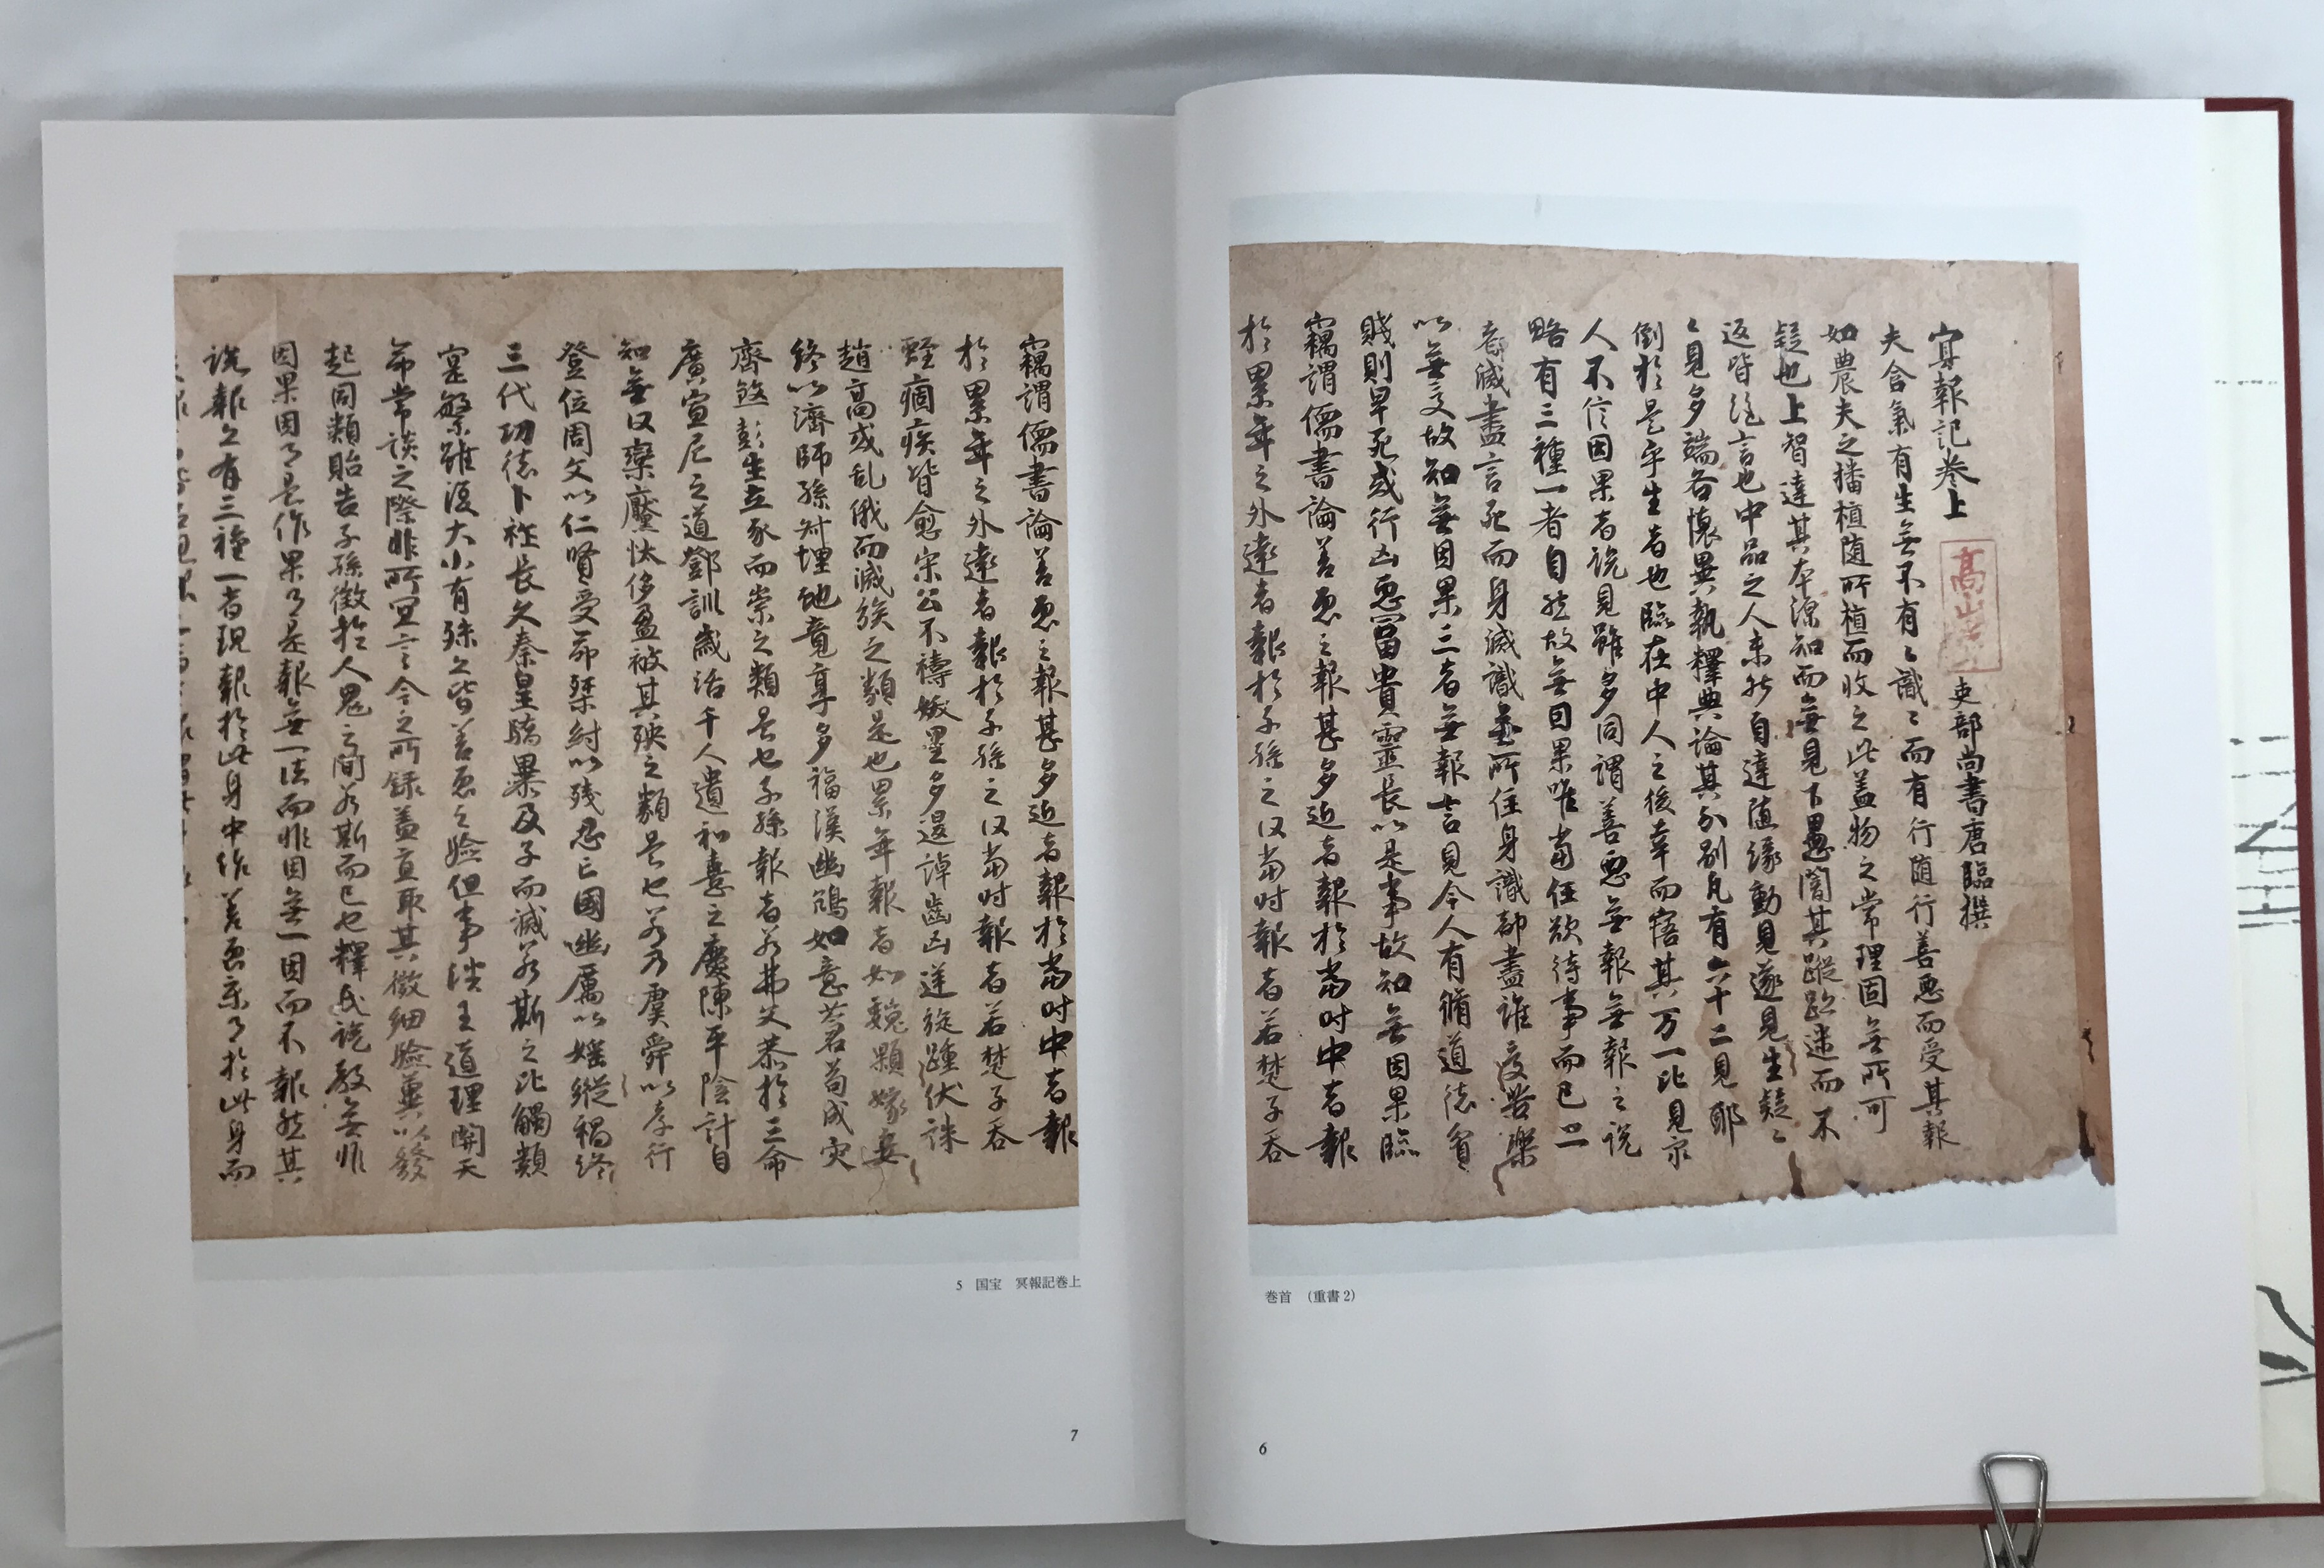 冥報記巻上 高山寺 吏部尚書唐臨撰
夫含氣有生無不有〻識〻而有行随行善惡而受其報
如農夫之播植随所植而收之此盖物之常理固無所可
疑也上智達其本源知而無見下愚闇其蹤跡迷而不
返皆絶言也中品之人未能自達随緣動見逐見生疑〻
〻見多端各懷異執釋典論其分別凡有六十二見耶
倒於是乎生者也臨在中人之後幸而寤其万一比見衆
人不信因果者説見雖多同謂善惡無報無報之説
略有三種一者自然故無因果唯當任欲待事而已二
者滅盡言死而身滅識無所住身識都盡誰受苦樂
以無受故知無因果三者無報言見今人有脩道德貧
賤則早死或行凶惡富貴靈長以是事故知無因果臨
竊謂儒書論善惡之報甚多近者報於當时中者報
於累年之外遠者報於子孫之後當时報者若楚子吞
巻首 （重書2）
6
竊謂儒書論善惡之報甚多近者報於當时中者報
於累年之外遠者報於子孫之後當时報者若楚子吞
蛭痼疾皆愈宋公不禱妖星多退諱齒凶逆旋踵伏誅
趙高或乱俄而滅族之類是也累年報者如魏顆嫁妾
終以濟師孫叔埋虵竟享多福漢幽鴆如意蒼苟成灾
齊煞彭生立豕而祟之類是也子孫報者若弗父恭於三命
廣宣尼之道鄧訓歲活千人遺和熹之慶陳平陰計自
知無後欒黶忲侈盈被其殃之類是也若乃虞舜以孝行
登位周文以仁賢受命桀紂以残忍亡國幽厲以婬縱禍終
三代功德卜祚長久秦皇驕暴及子而滅若斯之比觸類
寔繁雖復大小有殊亦皆善惡之驗但事法王道理關天
命常談之際非所宜言今之所録盖直取其微細驗冀以發
起同類貽告子孫徴於人鬼之間若斯而已也釋氏説教無非
因果因即是作果即是報無一法而非因無一因而不報然其
説報亦有三種一者現報於此身中作善惡業即於此身而
5 国宝 冥報記巻上
7